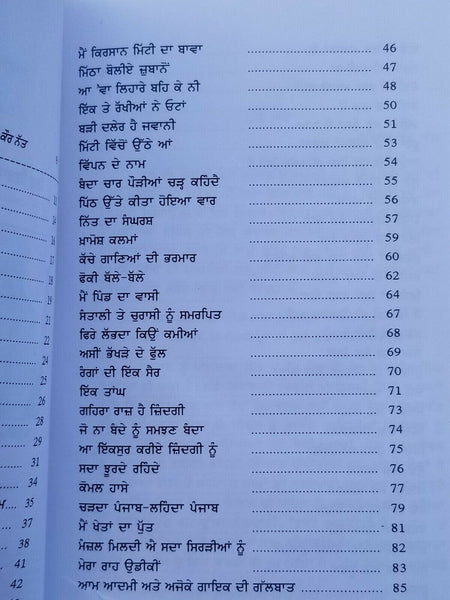 ਕੌਰ ਨੱਤ
ਮੈਂ ਕਿਰਸਾਨ ਮਿੱਟੀ ਦਾ ਬਾਵਾ ........ 46
ਮਿੱਠਾ ਬੋਲੀਏ ਜ਼ੁਬਾਨੋਂ ........ 47
ਆ 'ਵਾ ਲਿਹਾਰੇ ਬਹਿ ਕੇ ਨੀ ........ 48
ਇੱਕ ਤੇ ਰੱਖੀਆਂ ਨੇ ਓਟਾਂ ........ 50
ਬੜੀ ਦਲੇਰ ਹੈ ਜਵਾਨੀ ........ 51
ਮਿੱਟੀ ਵਿੱਚੋਂ ਉੱਠੇ ਆਂ ........ 53
ਵਿੱਪਨ ਦੇ ਨਾਮ ........ 54
ਬੰਦਾ ਚਾਰ ਪੌੜੀਆਂ ਚੜ੍ਹ ਕਹਿਦੈ ........ 55
ਪਿੱਠ ਉੱਤੇ ਕੀਤਾ ਹੋਇਆ ਵਾਰ ........ 56
ਨਿੱਤ ਦਾ ਸੰਘਰਸ਼ ........ 57
ਖ਼ਾਮੋਸ਼ ਕਲਮਾਂ ........ 59
ਕੱਚੇ ਗਾਣਿਆਂ ਦੀ ਭਰਮਾਰ ........ 60
ਫੋਕੀ ਬੱਲੇ-ਬੱਲੇ ........ 62
ਮੈਂ ਪਿੰਡ ਦਾ ਵਾਸੀ ........ 64
ਸੰਤਾਲੀ ਤੇ ਚੁਰਾਸੀ ਨੂੰ ਸਮਰਪਿਤ ........ 67
ਫਿਰੇ ਲੱਭਦਾ ਕਿਉਂ ਕਮੀਆਂ ........ 68
ਅਸੀਂ ਭੱਖੜੇ ਦੇ ਫੁੱਲ ........ 69
ਰੰਗਾਂ ਦੀ ਇੱਕ ਸੈਰ ........ 70
ਇੱਕ ਤਾਂਘ ........ 71
ਗਹਿਰਾ ਰਾਜ਼ ਹੈ ਜ਼ਿੰਦਗੀ ........ 73
ਜੋ ਨਾ ਬੰਦੇ ਨੂੰ ਸਮਝਣ ਬੰਦਾ ........ 74
ਆ ਇੱਕਸੁਰ ਕਰੀਏ ਜ਼ਿੰਦਗੀ ਨੂੰ ........ 75
ਸਦਾ ਝੂਰਦੇ ਰਹਿੰਦੇ ........ 76
ਕੋਮਲ ਹਾਸੇ ........ 77
ਚੜਦਾ ਪੰਜਾਬ-ਲਹਿੰਦਾ ਪੰਜਾਬ ........ 79
ਮੈਂ ਖੇਤਾਂ ਦਾ ਪੁੱਤ ........ 81
ਮੰਜ਼ਲ ਮਿਲਦੀ ਐ ਸਦਾ ਸਿਰੜੀਆਂ ਨੂੰ ........ 82
ਮੇਰਾ ਰਾਹ ਉਡੀਕੀਂ ........ 83
ਆਮ ਆਦਮੀ ਅਤੇ ਅਜੋਕੇ ਗਾਇਕ ਦੀ ਗੱਲਬਾਤ ........ 85
14
16
17
18
19
21
22
24
25
26
28
29
31
34
35
37
38
41
42